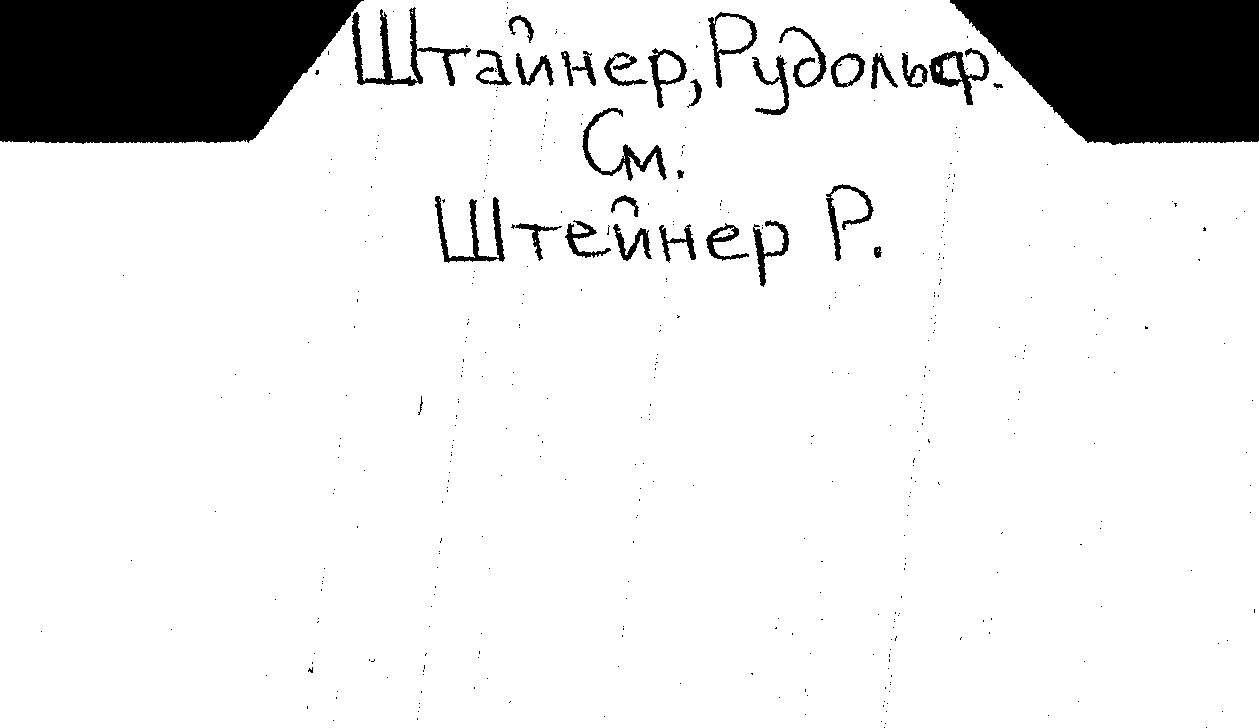 Штайнер, Рудольф.
См.
Штейнер Р.